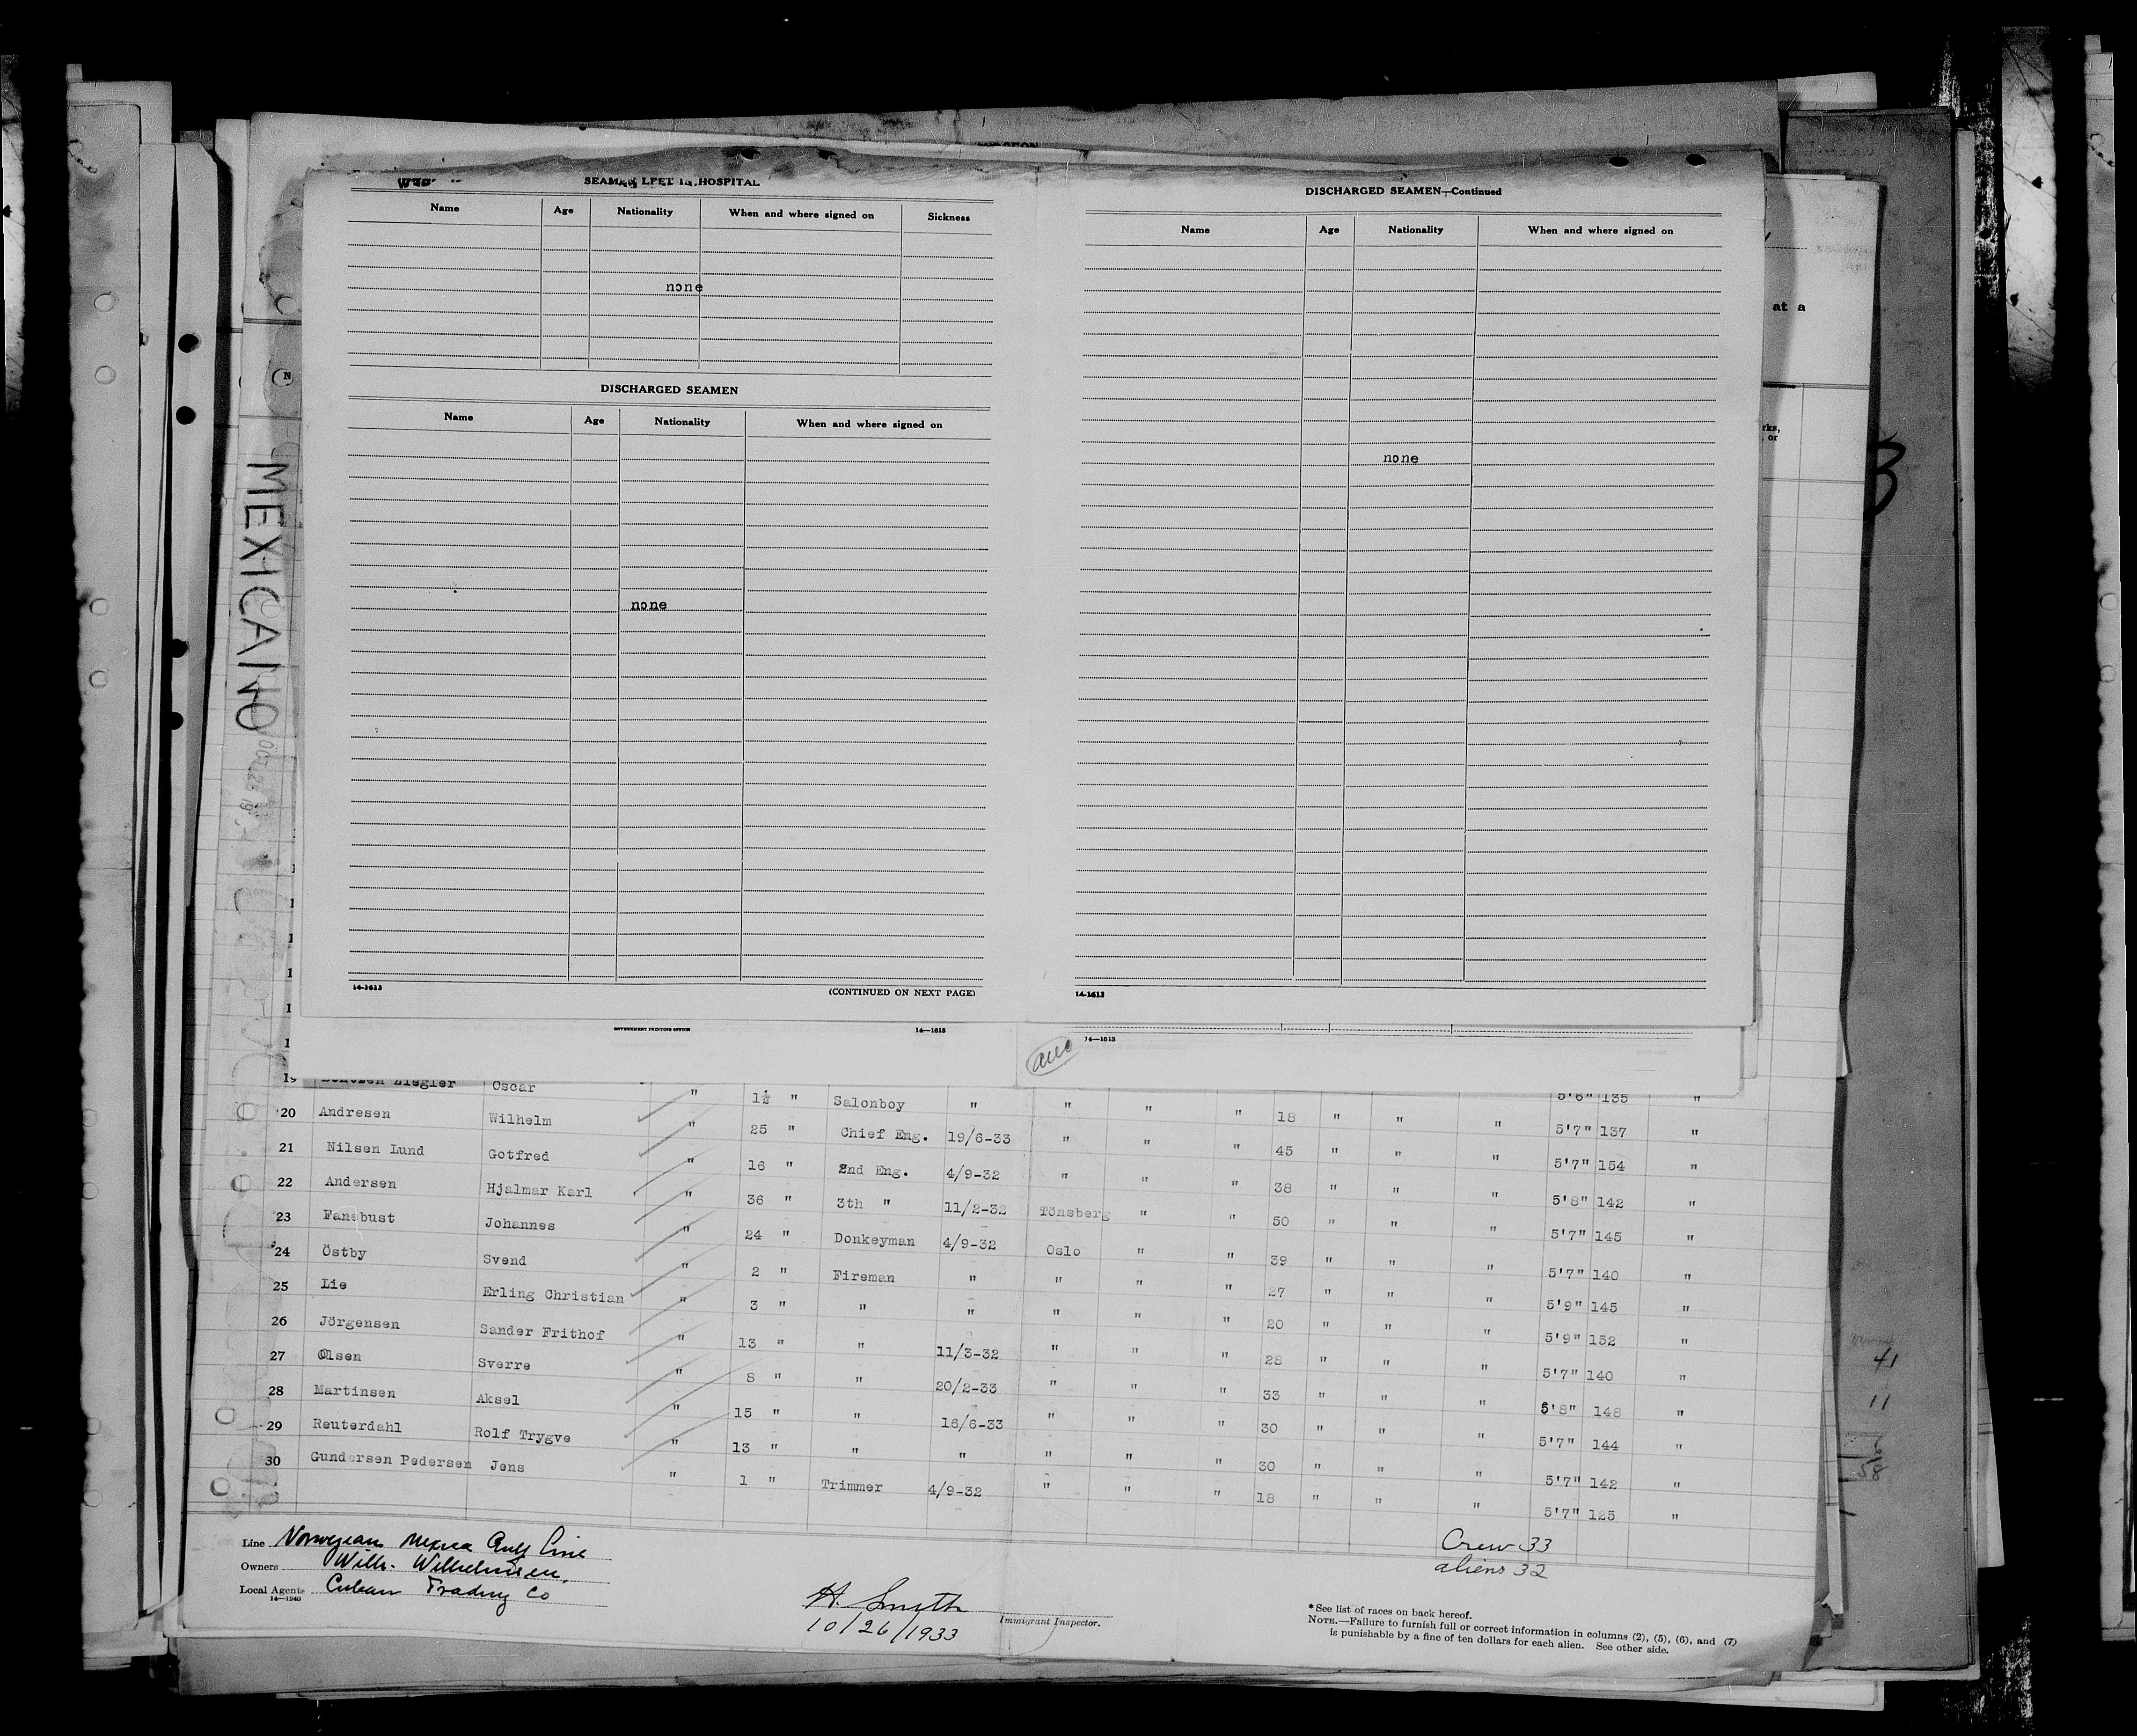 SEAMEN LEFT IN HOSPITAL
Name Age Nationality When and where signed on Sickness
none
DISCHARGED SEAMEN
Name Age Nationality When and where signed on
none
14-1613 (CONTINUED ON NEXT PAGE)
DISCHARGED SEAMEN—Continued
Name Age Nationality When and where signed on
none
14-1613
at a
rks,
, or
MEXICANO
GOVERNMENT PRINTING OFFICE 14—1613
14—1613
5'6" 135 "
19 Ziegler Oscar " 1½ " Salonboy " " " " 18 " " " 5'7" 137 "
20 Andresen Wilhelm " 25 " Chief Eng. 19/6-33 " " " 45 " " " 5'7" 154 "
21 Nilsen Lund Gotfred " 16 " 2nd Eng. 4/9-32 " " " 38 " " " 5'8" 142 "
22 Andersen Hjalmar Karl " 36 " 3th " 11/2-32 Tönsberg " " 50 " " " 5'7" 145 "
23 Fanebust Johannes " 24 " Donkeyman 4/9-32 Oslo " " 39 " " " 5'7" 140 "
24 Östby Svend " 2 " Fireman " " " " 27 " " " 5'9" 145 "
25 Lie Erling Christian " 3 " " " " " " 20 " " " 5'9" 152 "
26 Jörgensen Sander Frithof " 13 " " 11/3-32 " " " 28 " " " 5'7" 140 "
27 Olsen Sverre " 8 " " 20/2-33 " " " 33 " " " 5'8" 148 "
28 Martinsen Aksel " 15 " " 16/6-33 " " " 30 " " " 5'7" 144 "
29 Reuterdahl Rolf Trygve " 13 " " " " " " 30 " " " 5'7" 142 "
30 Gundersen Pedersen Jens " 1 " Trimmer 4/9-32 " " " 18 " " " 5'7" 125 "
41
11
6
58
Line Norwegian Mexica Gulf Line
Owners Wilh. Wilhelmsen,
Local Agents Cuban Trading Co
14—1240
Crew 33
aliens 32
H. Smith
Immigrant Inspector.
10/26/1933
*See list of races on back hereof.
NOTE.—Failure to furnish full or correct information in columns (2), (5), (6), and (7)
is punishable by a fine of ten dollars for each alien. See other side.